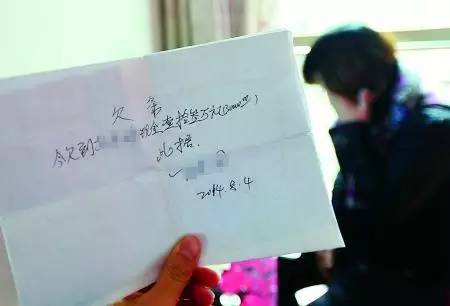 欠条
今欠到 现金壹拾叁万元
此据
2014.8.4